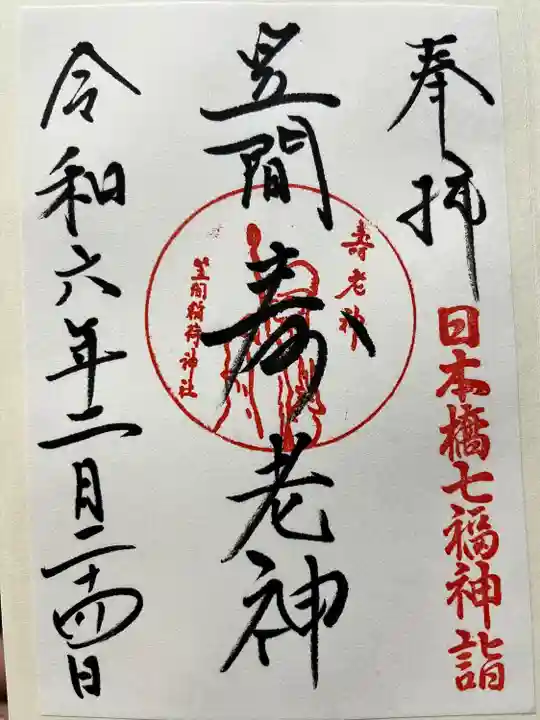 奉拝
日本橋七福神詣
笠間寿老神
寿老神
笠間稲荷神社
令和六年二月二十四日